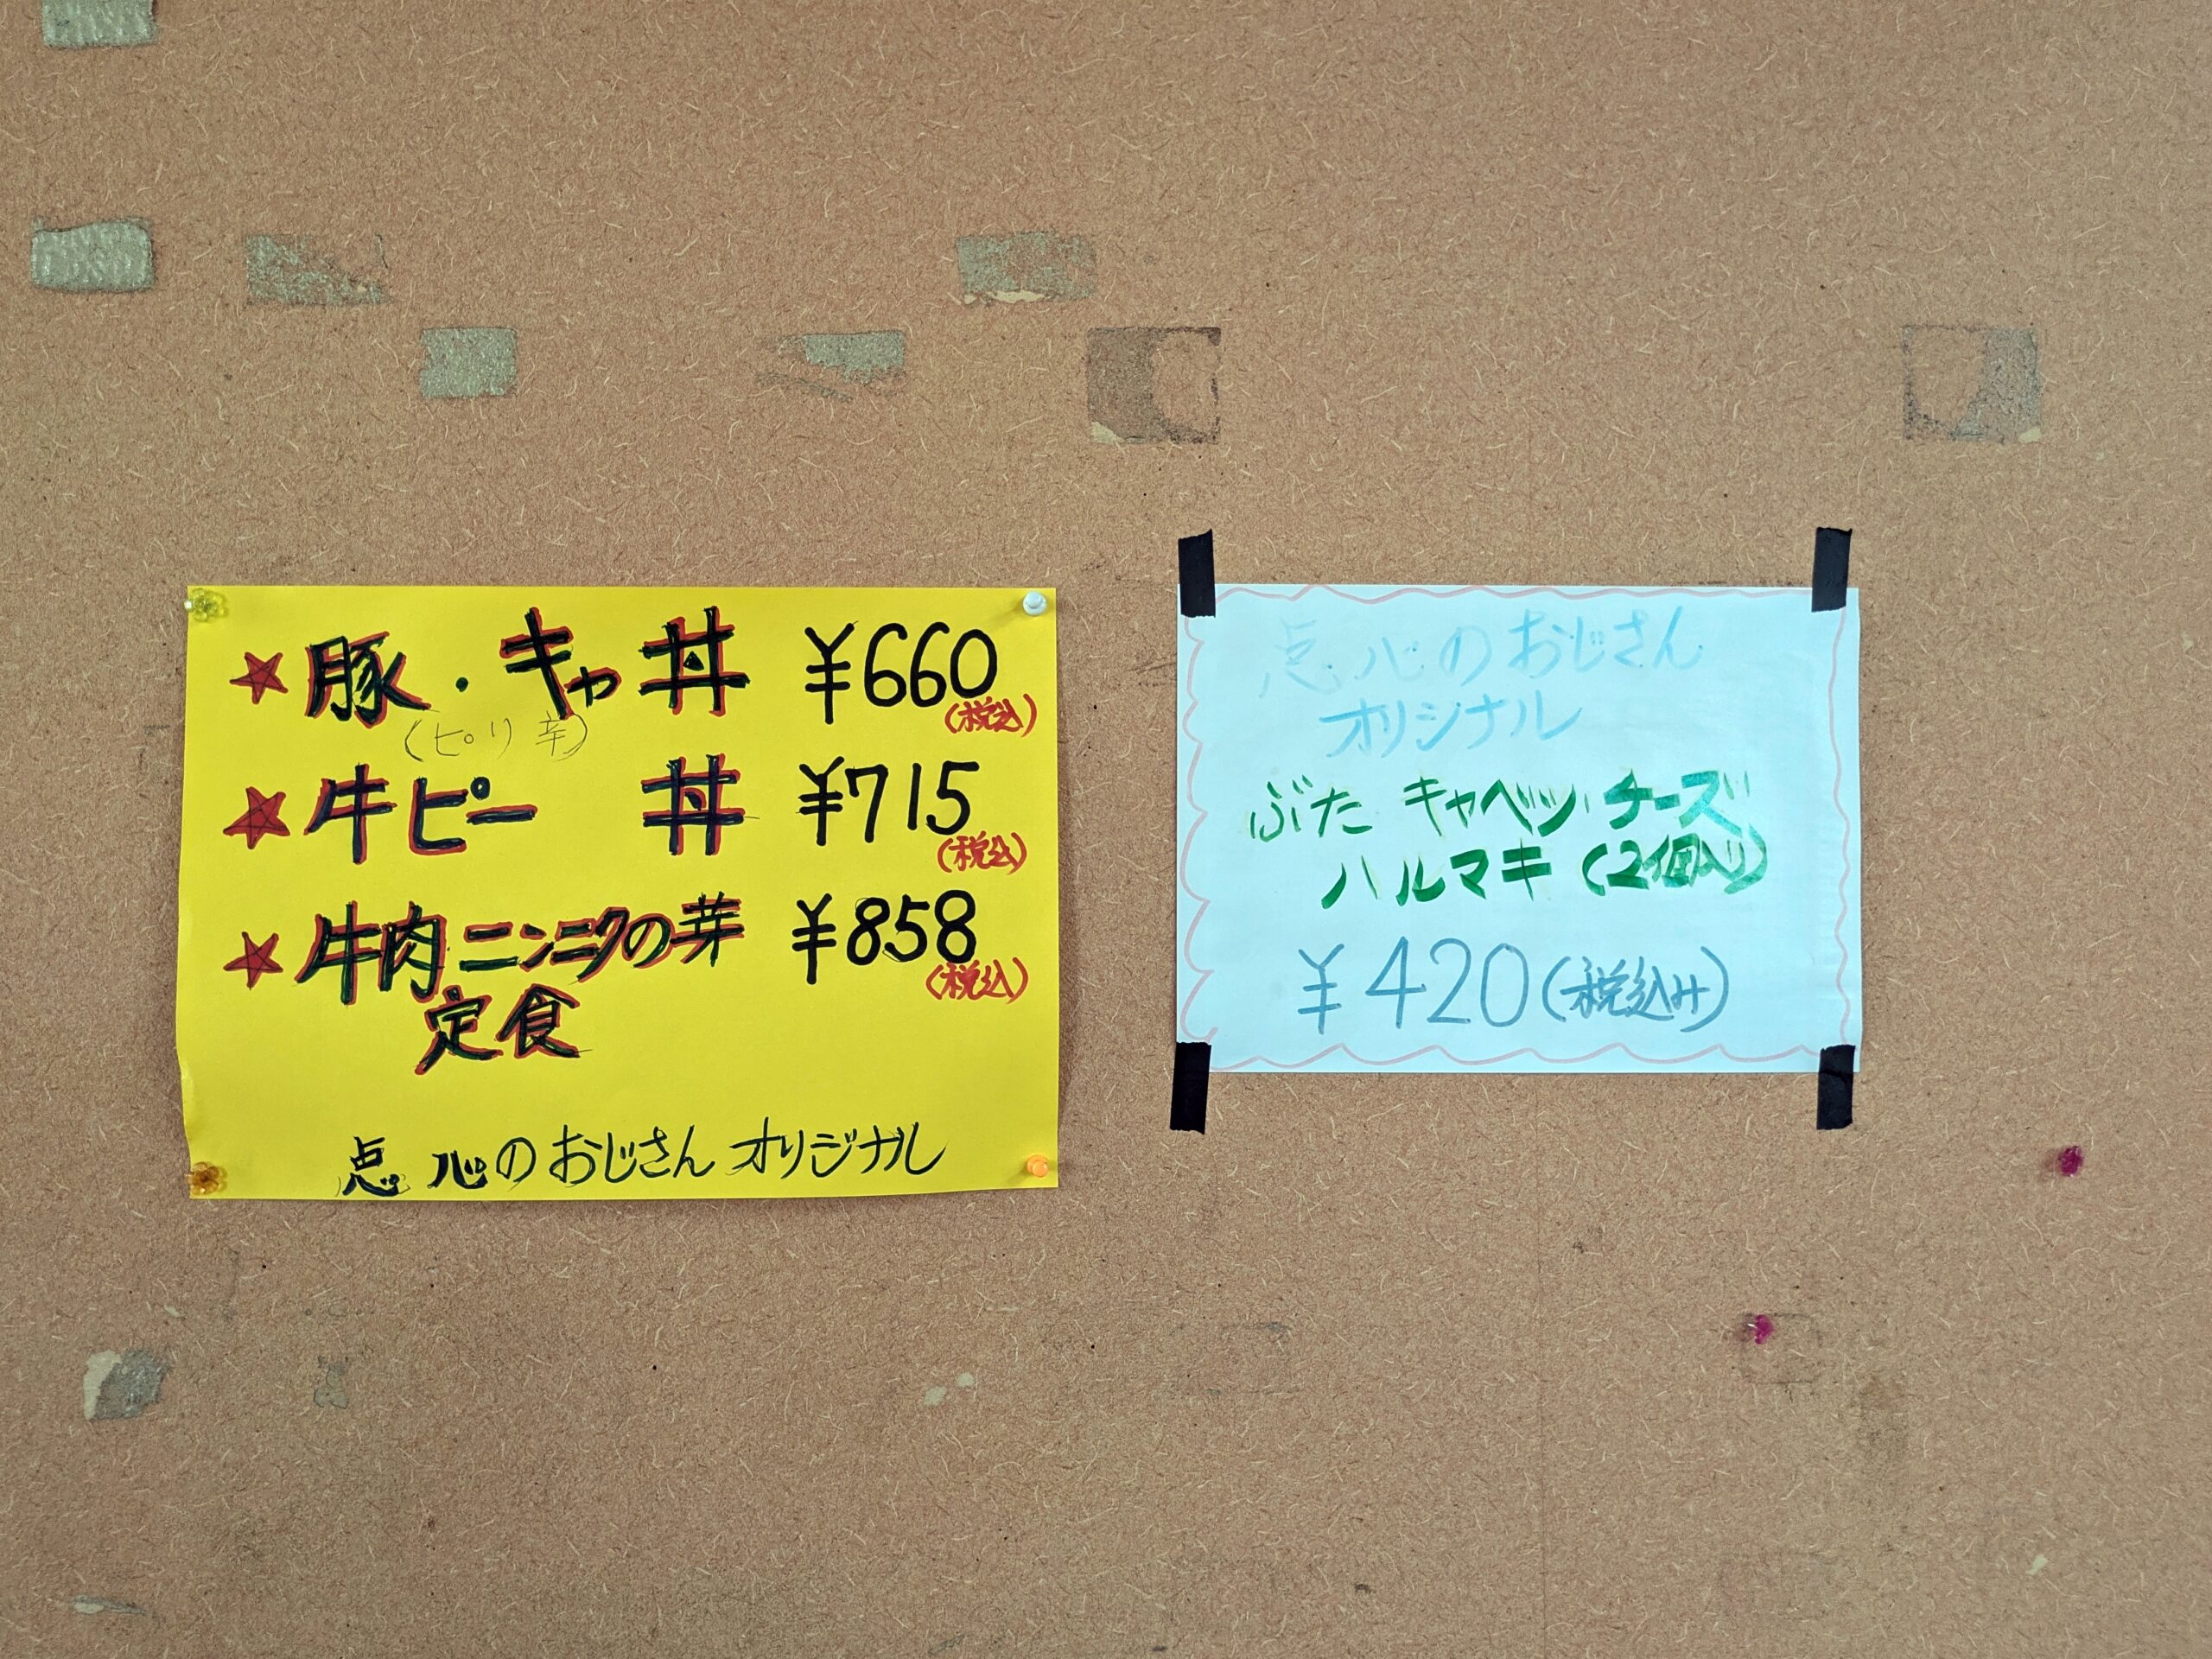 ★豚・キャ丼 ¥660
(税込)
(ピリ辛)
★牛ピー 丼 ¥715
(税込)
★牛肉ニンニクの芽 ¥858
(税込)
定食
点心のおじさん オリジナル
点心のおじさん
オリジナル
ぶた キャベツ チーズ
ハルマキ (2個入り)
¥420(税込み)